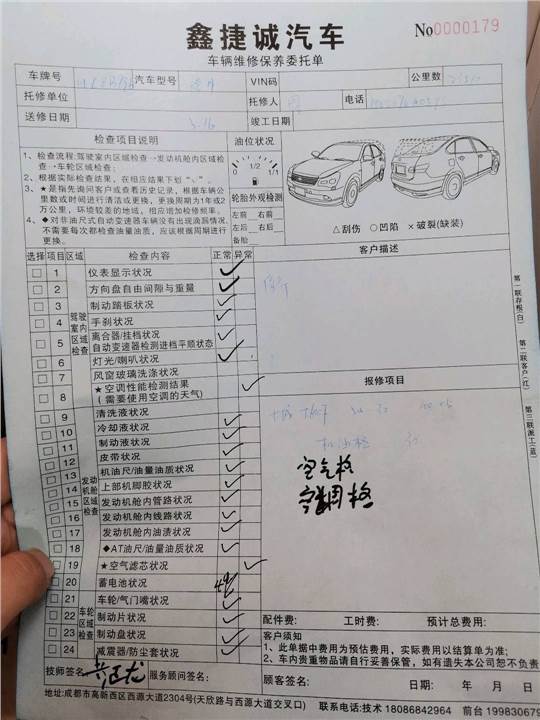 鑫捷诚汽车
No0000179
车辆维修保养委托单
车牌号 汽车型号 VIN码 公里数
托修单位 托修人 电话
送修日期 3-16 竣工日期
检查项目说明
1、检查流程:驾驶室内区域检查→发动机舱内区域检
查→车轮区域检查;
2、根据实际检查结果,在相应结果下划“✓”。
3、★是指先询问客户或查看历史记录,根据车辆公
里数或时间进行清洁或更换,更换周期为1年或2
万公里,环境较差的地域,相应增加检修频率。
4、◆对非油尺式自动变速器车辆没有出现滴漏情况,
不需要每次都检查油量油质,应该根据周期进行
更换。
油位状况
0 1/2 1/1
轮胎外观检测
左前 右前
左后 右后
备胎
△刮伤 ○凹陷 ×破裂(缺装)
选择 项目 区域 检查内容 正常 异常
驾驶室内区域检查
1 仪表显示状况 ✓
2 方向盘自由间隙与重量 ✓
3 制动踏板状况 ✓
4 手刹状况 ✓
5 离合器/挂档状况
自动变速器检测进档平顺状态 ✓
6 灯光/喇叭状况 ✓
7 风窗玻璃洗涤状况
8 ★空调性能检测结果
(需要使用空调的天气) ✓
发动机舱区域检查
9 清洗液状况 ✓
10 冷却液状况 ✓
11 制动液状况 ✓
12 皮带状况 ✓
13 机油尺/油量油质状况 ✓
14 上部机脚胶状况 ✓
15 发动机舱内管路状况 ✓
16 发动机舱内线路状况 ✓
17 发动机舱内油渍状况 ✓
18 ◆AT油尺/油量油质状况 ✓
19 ★空气滤芯状况 ✓
20 蓄电池状况
车轮区域检查
21 车轮/气门嘴状况 ✓
22 制动片状况 ✓
23 制动盘状况 ✓
24 减震器/防尘套状况 ✓
客户描述
报修项目
机油格
空气格
空调格
第一联存根(白)
第二联客户(红)
第三联派工(蓝)
配件费: 工时费: 预计总费用:
客户须知
1、此单据中费用为预估费用,实际费用以结算单为准;
2、车内贵重物品请自行妥善保管,如有遗失本公司恕不负责
技师签名: 服务顾问签名: 顾客签名: 日期: 年 月 日
地址:成都市高新西区西源大道2304号(天欣路与西源大道交叉口) 联系电话:技术 18086842964 前台 199830679